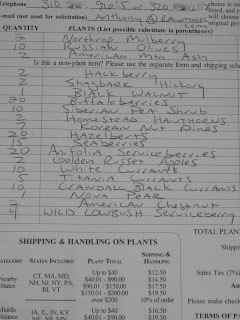 Telephone 310
e-mail (not for solicitation) Anthony
QUANTITY PLANTS (List possible substitute in parentheses)
2 Northrop Mulberry
10 Russian Olives
2 American Mtn Ash
Is this a non-plant item? Please use the separate form and shipping
2 Hackberry
Shagbark Hickory
1 Black Walnut
20 Buffaloberries
10 Siberian Pea Shrub
2 Homestead Hawthorns
Korean Nut Pines
20 Hazelberts
15 Seaberries
20 Alnifolia Serviceberries
2 Golden Russet Apples
10 White Currants
5 Titania Currants
10 Crandall Black Currants
Nova Pear
American Chestnut
4 Wild Lowbush Serviceberry
TOTAL PLAN
SHIPPING & HANDLING ON PLANTS
STATES INCLUDED PLANT TOTAL SHIPPING & HANDLING
Nearby States CT, MA, MD, NH, NJ, NY, PA, RI, VT
Up to $40 $12.50
$40.01 - $90.00 $14.50
$90.01 - $150.00 $17.50
$150.01 - $200.00 $19.50
over $200 10% of order
Sales Tax (7%)
Please make check
Middle IA, IL, IN, KY Up to $40 $16.50
$40.01 - $90.00 $19.50
TERMS OF P